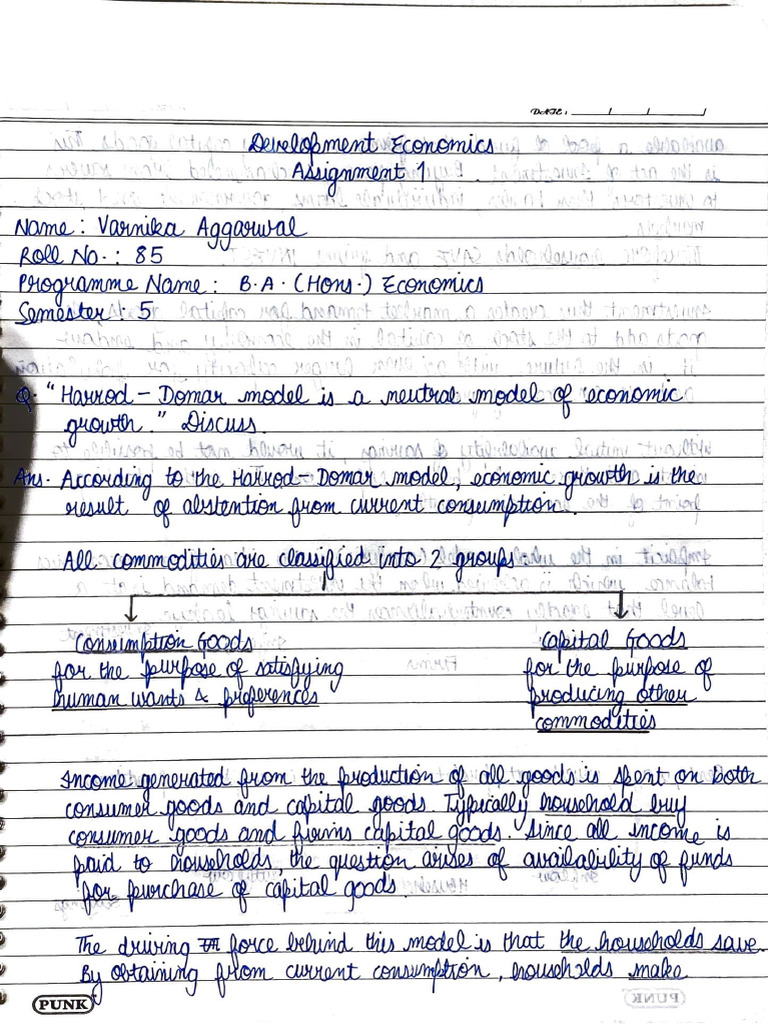 DATE:
Development Economics
Assignment 1
Name: Varnika Aggarwal
Roll No.: 85
Programme Name: B.A. (Hons.) Economics
Semester: 5
Q. "Harrod-Domar model is a neutral model of economic
growth." Discuss.
Ans. According to the Harrod-Domar model, economic growth is the
result of abstention from current consumption.
All commodities are classified into 2 groups
Consumption Goods
for the purpose of satisfying
human wants & preferences
Capital Goods
for the purpose of
producing other
commodities
Income generated from the production of all goods is spent on both
consumer goods and capital goods. Typically household buy
consumer goods and firms capital goods. Since all income is
paid to households, the question arises of availability of funds
for purchase of capital goods.
The driving force behind this model is that the households save.
By obtaining from current consumption, households make
PUNK